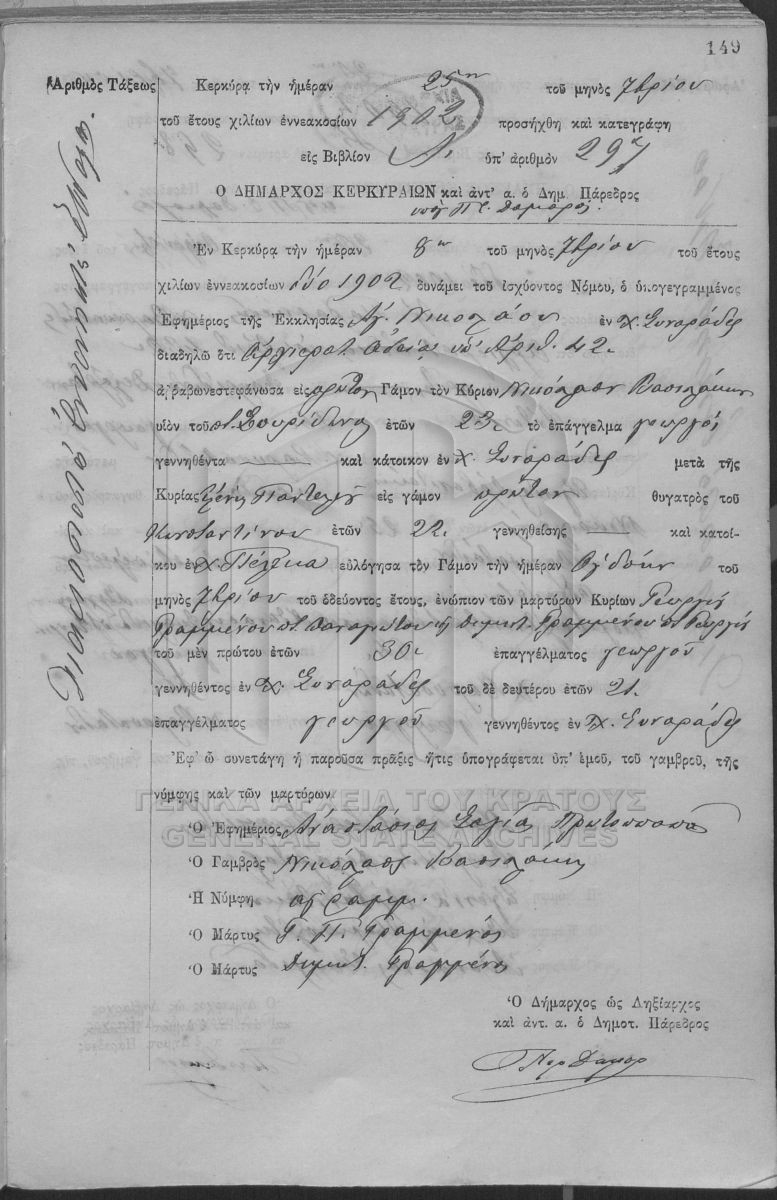 149
Ἀριθμὸς Τάξεως
Κερκύρᾳ τὴν ἡμέραν 25ην τοῦ μηνὸς 7βρίου
τοῦ ἔτους χιλίων ἐννεακοσίων 1902 προσήχθη καὶ κατεγράφη
εἰς Βιβλίον Λ. ὑπ' ἀριθμὸν 297
Ὁ ΔΗΜΑΡΧΟΣ ΚΕΡΚΥΡΑΙΩΝ καὶ ἀντ' α. ὁ Δημ. Πάρεδρος
Ἐν Κερκύρᾳ τὴν ἡμέραν 8ην τοῦ μηνὸς 7βρίου τοῦ ἔτους
χιλίων ἐννεακοσίων δύο 1902 δυνάμει τοῦ ἰσχύοντος Νόμου, ὁ ὑπογεγραμμένος
Ἐφημέριος τῆς Ἐκκλησίας Ἁγ. Νικολάου ἐν χ. Συναράδες
διαδηλῶ ὅτι Ἀρχιερατ. Ἀδείας ὑπ' Ἀριθ. 42
ἀῤῥαβωνεστεφάνωσα εἰς πρῶτον Γάμον τὸν Κύριον Νικόλαον Βασιλάκην
υἱὸν τοῦ ποτ. Σπυρίδωνος ἐτῶν 23 τὸ ἐπάγγελμα γεωργός
γεννηθέντα καὶ κάτοικον ἐν χ. Συναράδες μετὰ τῆς
Κυρίας Ἑλένης Παντελῆ εἰς γάμον πρῶτον θυγατρὸς τοῦ
Κωνσταντίνου ἐτῶν 22. γεννηθείσης καὶ κατοί-
κου ἐν χ. Πέλεκα εὐλόγησα τὸν Γάμον τὴν ἡμέραν Ὀγδόην τοῦ
μηνὸς 7βρίου τοῦ ὁδεύοντος ἔτους, ἐνώπιον τῶν μαρτύρων Κυρίων Γεωργίου
Γραμμένου ποτ. Παναγιώτου ἢ Δημητ. Γραμμένου ποτ. Γεωργίου
τοῦ μὲν πρώτου ἐτῶν 30 ἐπαγγέλματος γεωργοῦ
γεννηθέντος ἐν χ. Συναράδες τοῦ δὲ δευτέρου ἐτῶν 21.
ἐπαγγέλματος γεωργοῦ γεννηθέντος ἐν χ. Συναράδες
Ἐφ' ᾧ συνετάγη ἡ παροῦσα πρᾶξις ἥτις ὑπογράφεται ὑπ' ἐμοῦ, τοῦ γαμβροῦ, τῆς
νύμφης καὶ τῶν μαρτύρων
ΓΕΝΙΚΑ ΑΡΧΕΙΑ ΤΟΥ ΚΡΑΤΟΥΣ
GENERAL STATE ARCHIVES
Ὁ Ἐφημέριος Ἀναστάσιος Πρωτοπαπᾶς
Ὁ Γαμβρὸς Νικόλαος Βασιλάκης
Ἡ Νύμφη ἀγράμμ.
Ὁ Μάρτυς Γ. Π. Γραμμένος
Ὁ Μάρτυς Δημητ. Γραμμένος
Ὁ Δήμαρχος ὡς Ληξίαρχος
καὶ ἀντ. α. ὁ Δημοτ. Πάρεδρος